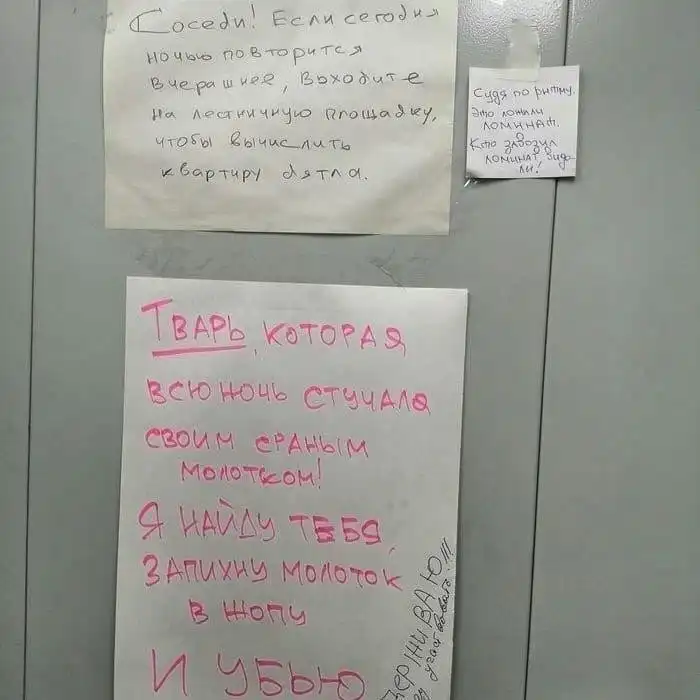 Соседи! Если сегодня
ночью повторится
вчерашнее, выходите
на лестничную площадку,
чтобы вычислить
квартиру дятла.
Судя по ритму,
это ложили
ломинат.
Кто завозил
ломинат, вида-
ли?
Тварь, которая
всю ночь стучала
своим сраным
молотком!
Я найду тебя,
запихну молоток
в жопу
и убью